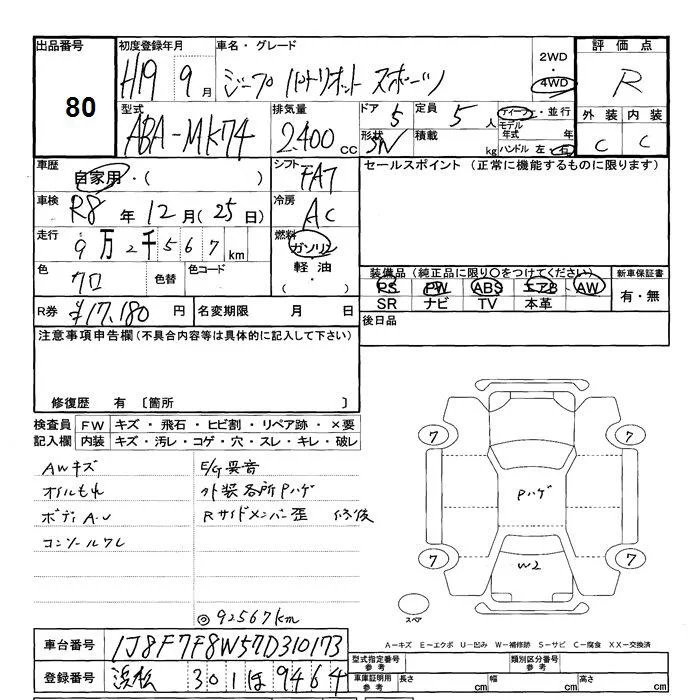 出品番号 初度登録年月 車名・グレード 2WD 評価点
80 H19 9月 ジープ パトリオット スポーツ 4WD R
型式 排気量 ドア 定員 ディーラー・並行 外装 内装
ABA-MK74 2400cc 5 5人 モデル年式 年 C C
形状 SW 積載 kg ハンドル 左・右
車歴 自家用・( ) シフト FAT セールスポイント (正常に機能するものに限ります)
車検 R8年12月(25日) 冷房 AC
走行 9万2千567km 燃料 ガソリン・軽油・( )
色 クロ 色替 色コード 装備品 (純正品に限り○をつけてください) 新車保証書
PS PW ABS エアB AW 有・無
R券 ¥17,180円 名変期限 月 日 SR ナビ TV 本革
注意事項申告欄 (不具合内容等は具体的に記入して下さい) 後日品
修復歴 有 〔箇所
検査員 FW キズ・飛石・ヒビ割・リペア跡・×要
記入欄 内装 キズ・汚レ・コゲ・穴・スレ・キレ・破レ
AWキズ E/G異音
オイルもれ 外装各所Pハゲ
ボディA・U Rサイドメンバー歪 修後
コンソールワレ
◎92567km
7 7
Pハゲ
7 7
W2
スペア
A-キズ E-エクボ U-凹み W-補修跡 S-サビ C-腐食 XX-交換済
車台番号 1J8F7F8W57D310173 型式指定番号 参考 類別区分番号 参考
登録番号 浜松 301 は 9464 車庫証明用 参考 長さ cm 幅 cm 高さ cm